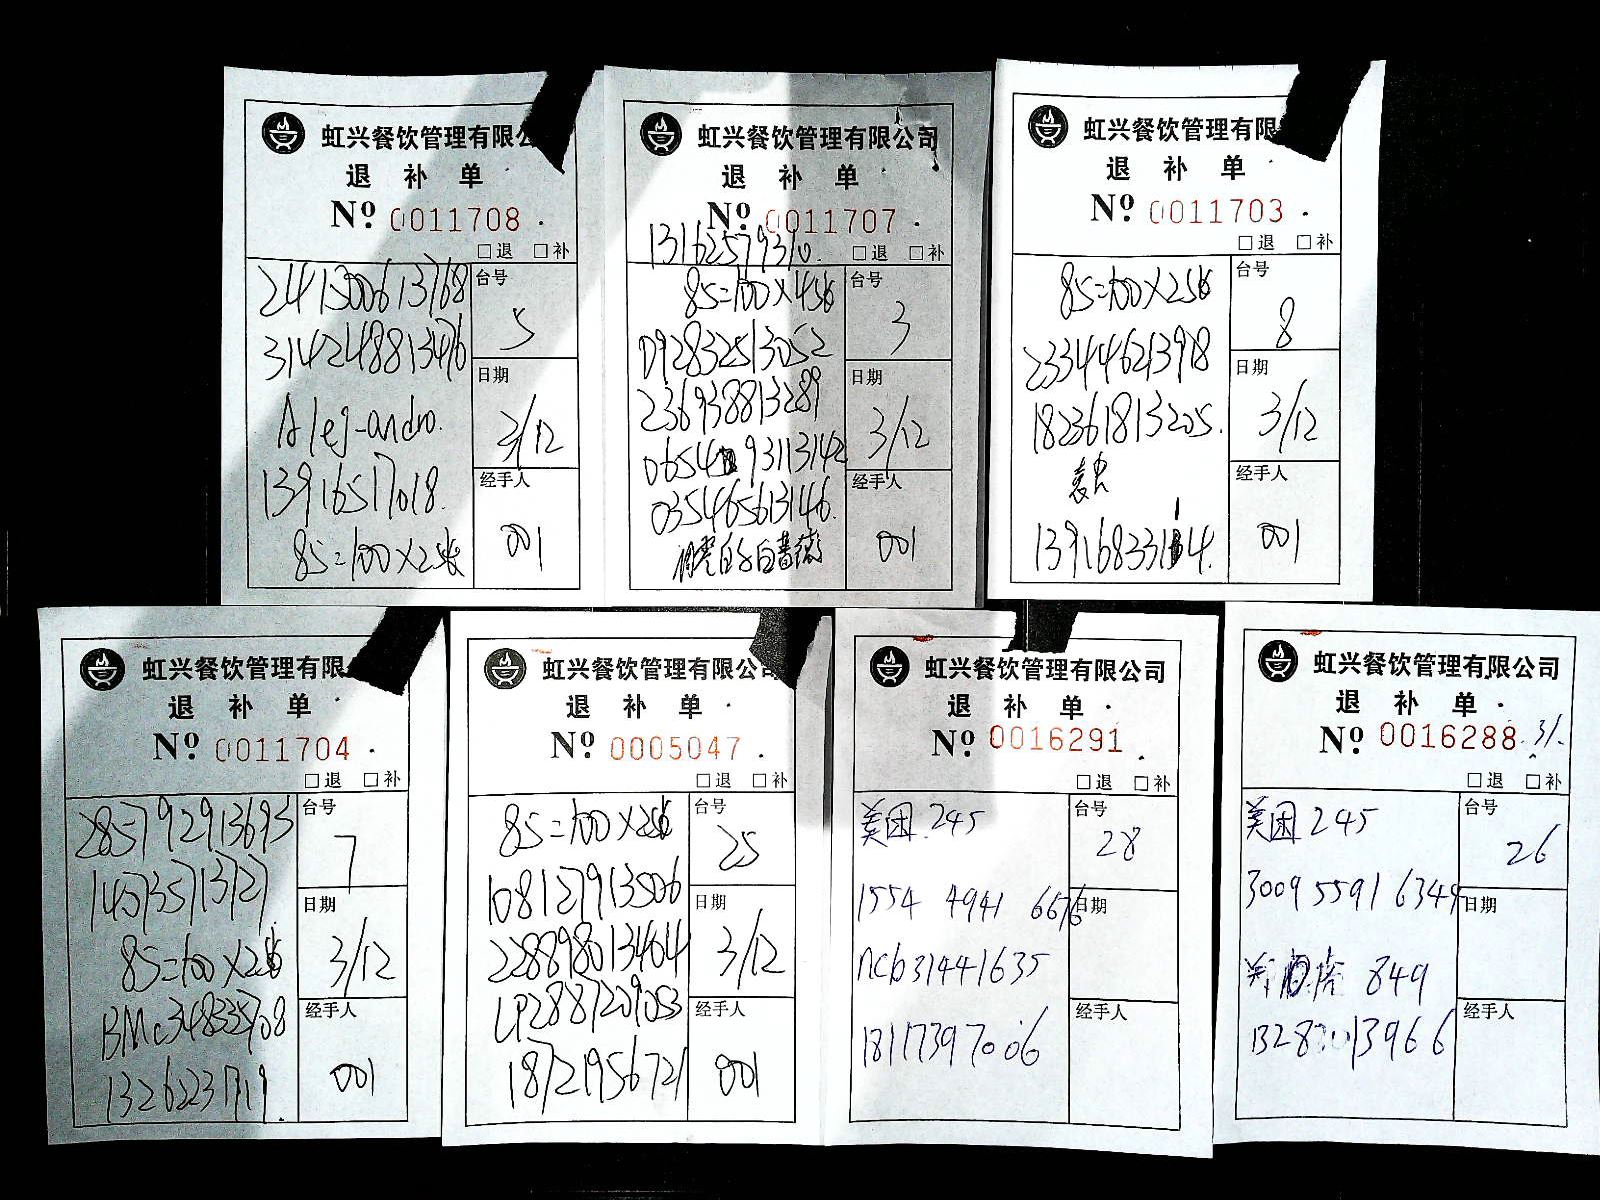 虹兴餐饮管理有限公
退 补 单
Nº 0011708
□退 □补
241300613768
314248813476
Alej-andro.
13916517018.
85=100×2张
台号
5
日期
3/12
经手人
001
虹兴餐饮管理有限公司
退 补 单
Nº 0011707
13162579310.
□退 □补
85=100×4张
092832513052
236938813289
0654 93113142
035465613146.
台号
3
日期
3/12
经手人
001
虹兴餐饮管理有限
退 补 单
Nº 0011703
□退 □补
85=100×2张
233444613918
182361813205.
台号
8
日期
3/12
经手人
001
虹兴餐饮管理有限
退 补 单
Nº 0011704
□退 □补
285792913693
145735713727
85=100×2张
BMC348335708
13262231719.
台号
7
日期
3/12
经手人
001
虹兴餐饮管理有限
退 补 单
Nº 0005047
□退 □补
85=100×2张
108127913506
228898013464
LP2887209053
18721956721
台号
25
日期
3/12
经手人
001
虹兴餐饮管理有限公司
退 补 单
Nº 0016291
□退 □补
美团 245
1554 4941 6676
ncb31441635
18117397006
台号
28
日期
经手人
虹兴餐饮管理有限公司
退 补 单
Nº 0016288 3/.
□退 □补
美团 245
3009 5591 6344
849
台号
26
日期
经手人